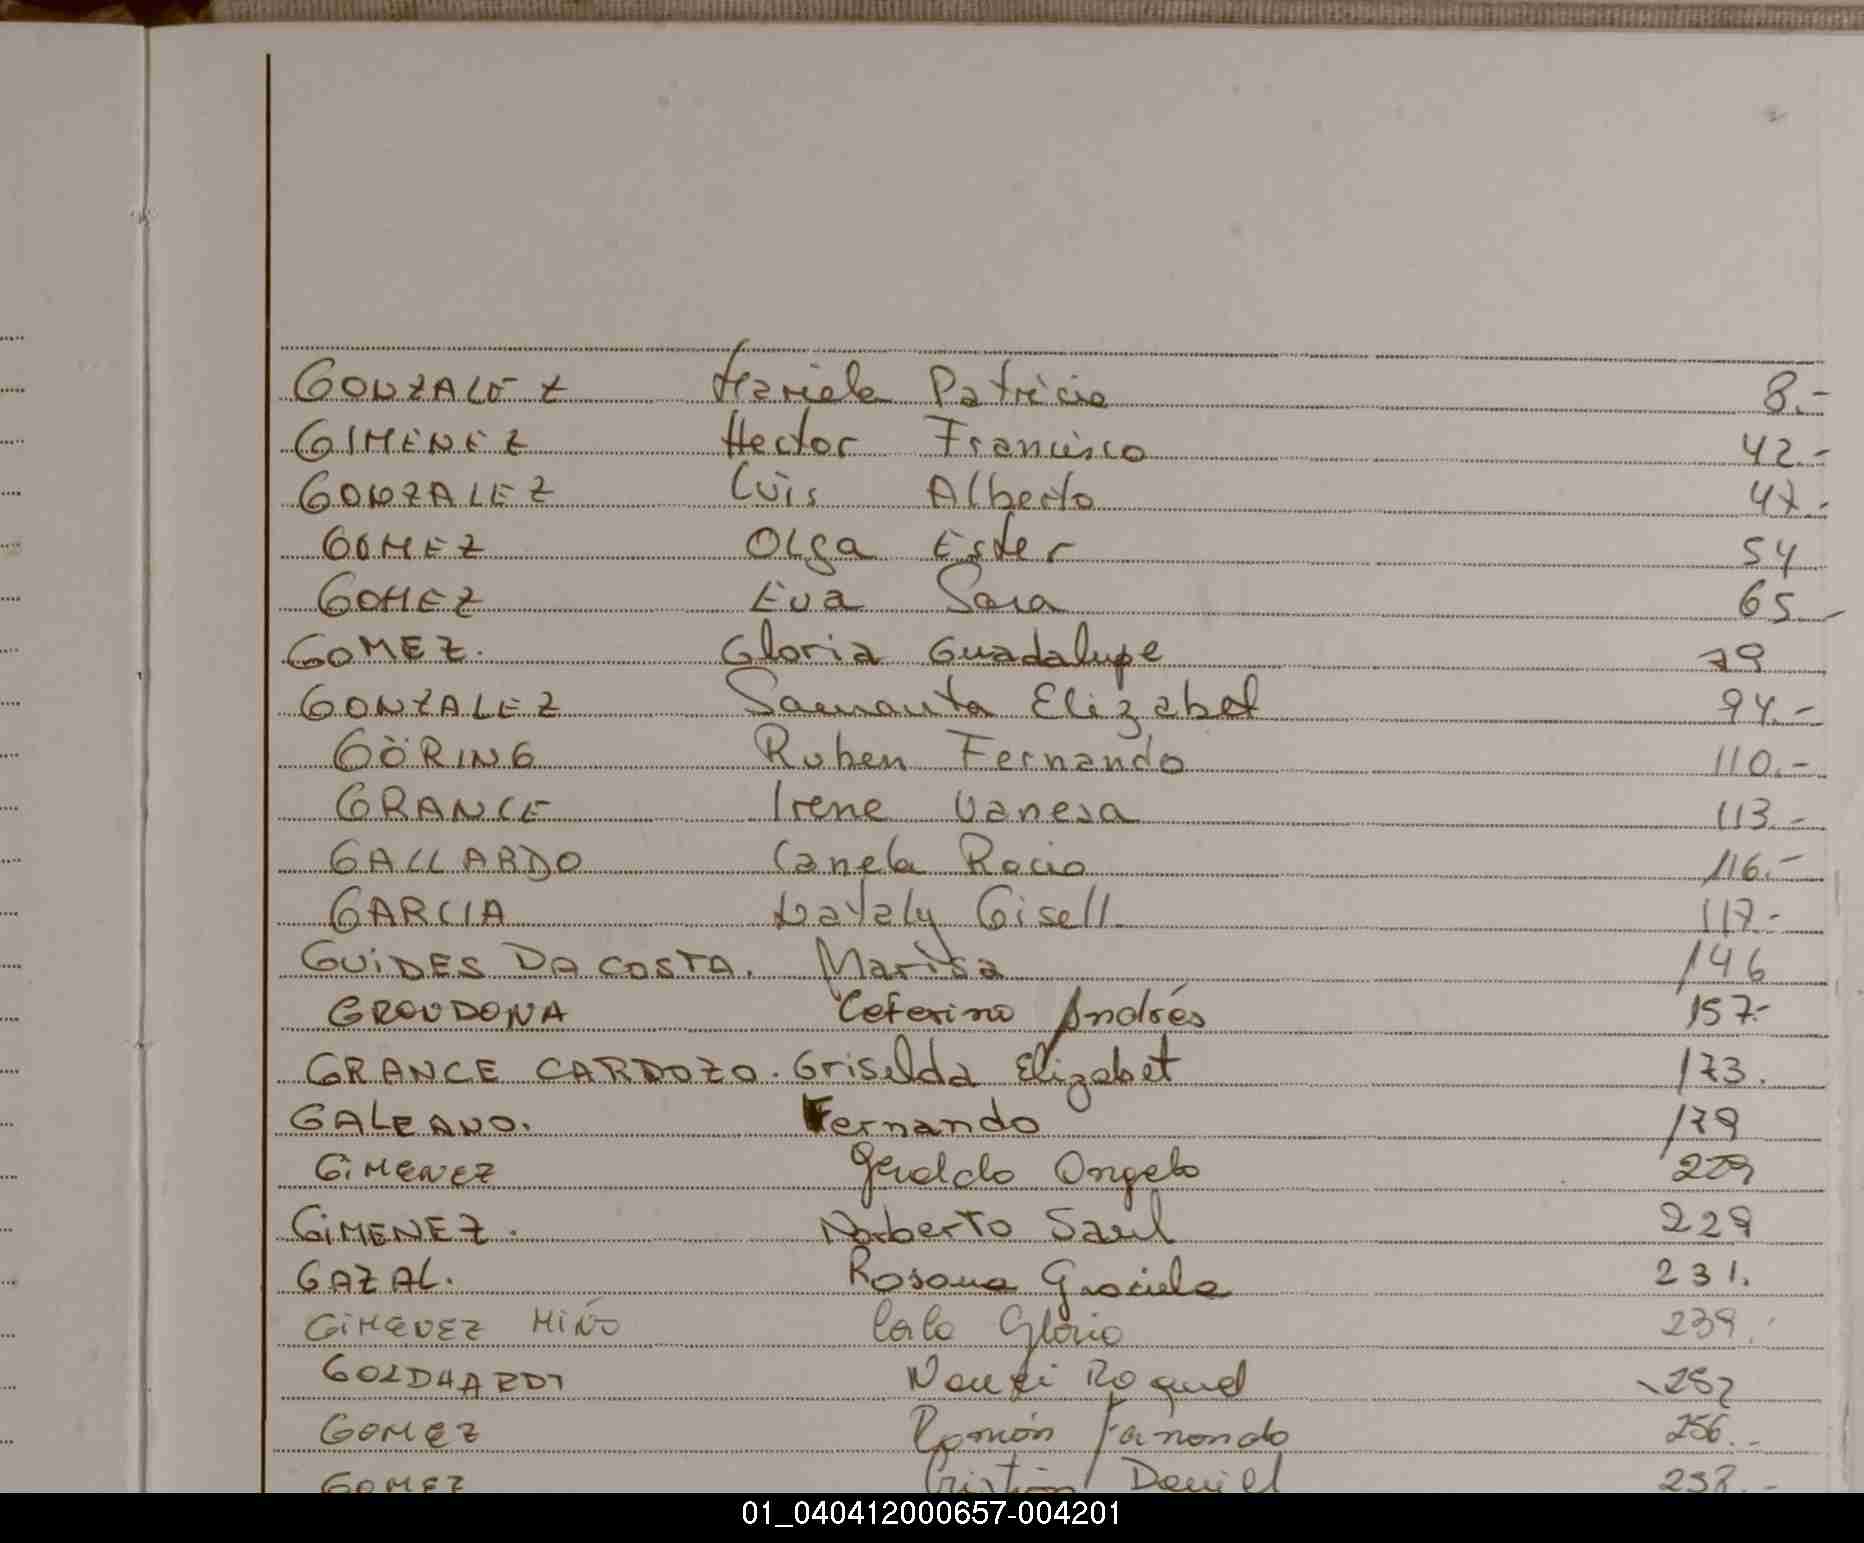 GONZALEZ Mariela Patricia 8.-
GIMENEZ Hector Francisco 42.-
GONZALEZ Luis Alberto 47.-
GOMEZ Olga Ester 54
GOMEZ Eva Sara 65.-
GOMEZ. Gloria Guadalupe 79
GONZALEZ Samanta Elizabet 94.-
GÖRING Ruben Fernando 110.-
GRANCE Irene Vanesa 113.-
GALLARDO Canela Rocio 116.-
GARCIA Nataly Gisell 117.-
GUIDES DA COSTA. Marisa 146
GROUDONA Ceferino Andrés 157.-
GRANCE CARDOZO. Griselda Elizabet 173.
GALEANO. Fernando 179
GIMENEZ Geraldo Angelo
GIMENEZ. Norberto Saul 229
GAZAL. Rosana Graciela 231.
GIMENEZ MIÑO Gloria 239.
GOLDHARDT Raquel
GOMEZ Ramón Fernando 256.-
GOMEZ Cristián Daniel
01_040412000657-004201